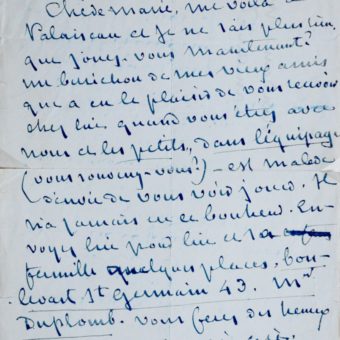 Chère Marie, me voilà à
Palaiseau et je ne sais plus rien,
que jouez-vous maintenant?
un berrichon de mes vieux amis
qui a eu le plaisir de vous recevoir
chez lui, quand vous étiez avec
nous et les petits, dans l'équipage
(vous souvenez-vous?) – est malade
d'envie de vous voir jouer. Il
n'a jamais eu ce bonheur. En-
voyez lui pour lui et sa
famille quelques places, bou-
levart St Germain 43. Mr
Duplomb. vous ferez des heureux